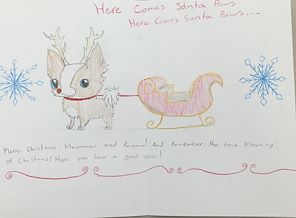 Here Comes Santa Paws
Here Comes Santa Paws...
Merry Christmas Mawmaw and Pawpaw! And Remember the true Meaning
of Christmas! Hope you have a good one!